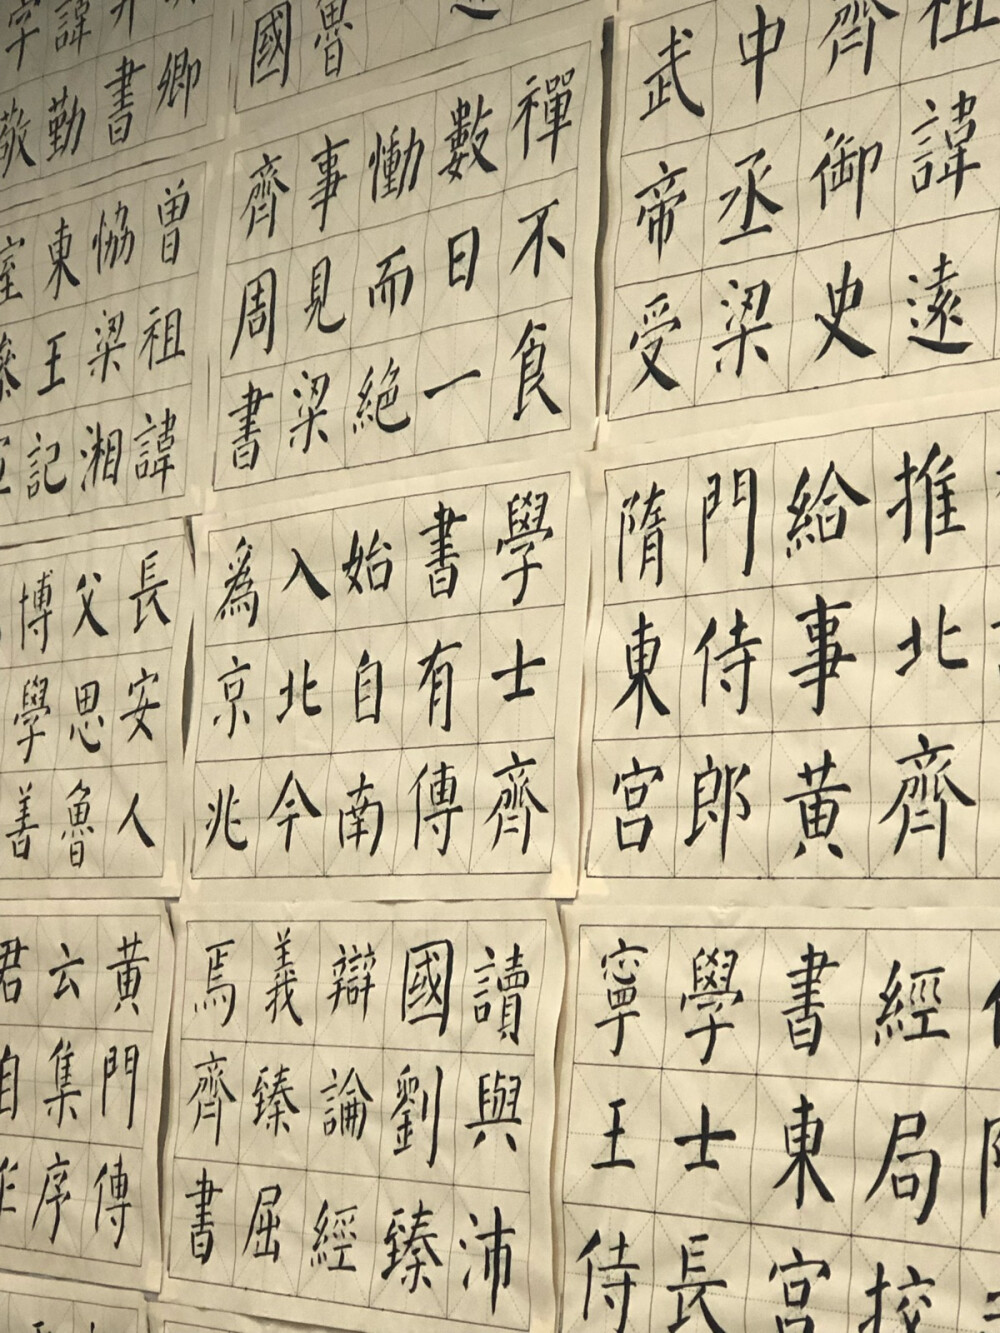 魯
國
卿
書
諱勤
字敬
祖諱遠
齊御史
中丞梁
武帝受
禪不食
數日一
慟而絕
事見梁
齊周書
曾祖諱
協梁湘
東王記
推北齊
給事黃
門侍郎
隋東宮
學士齊
書有傳
始自南
入北今
爲京兆
長安人
父思魯
博學善
經局校
書東宮
學士長
寧王侍
讀與沛
國劉臻
辯論經
義臻屈
焉齊書
黃門傳
云集序
君自作